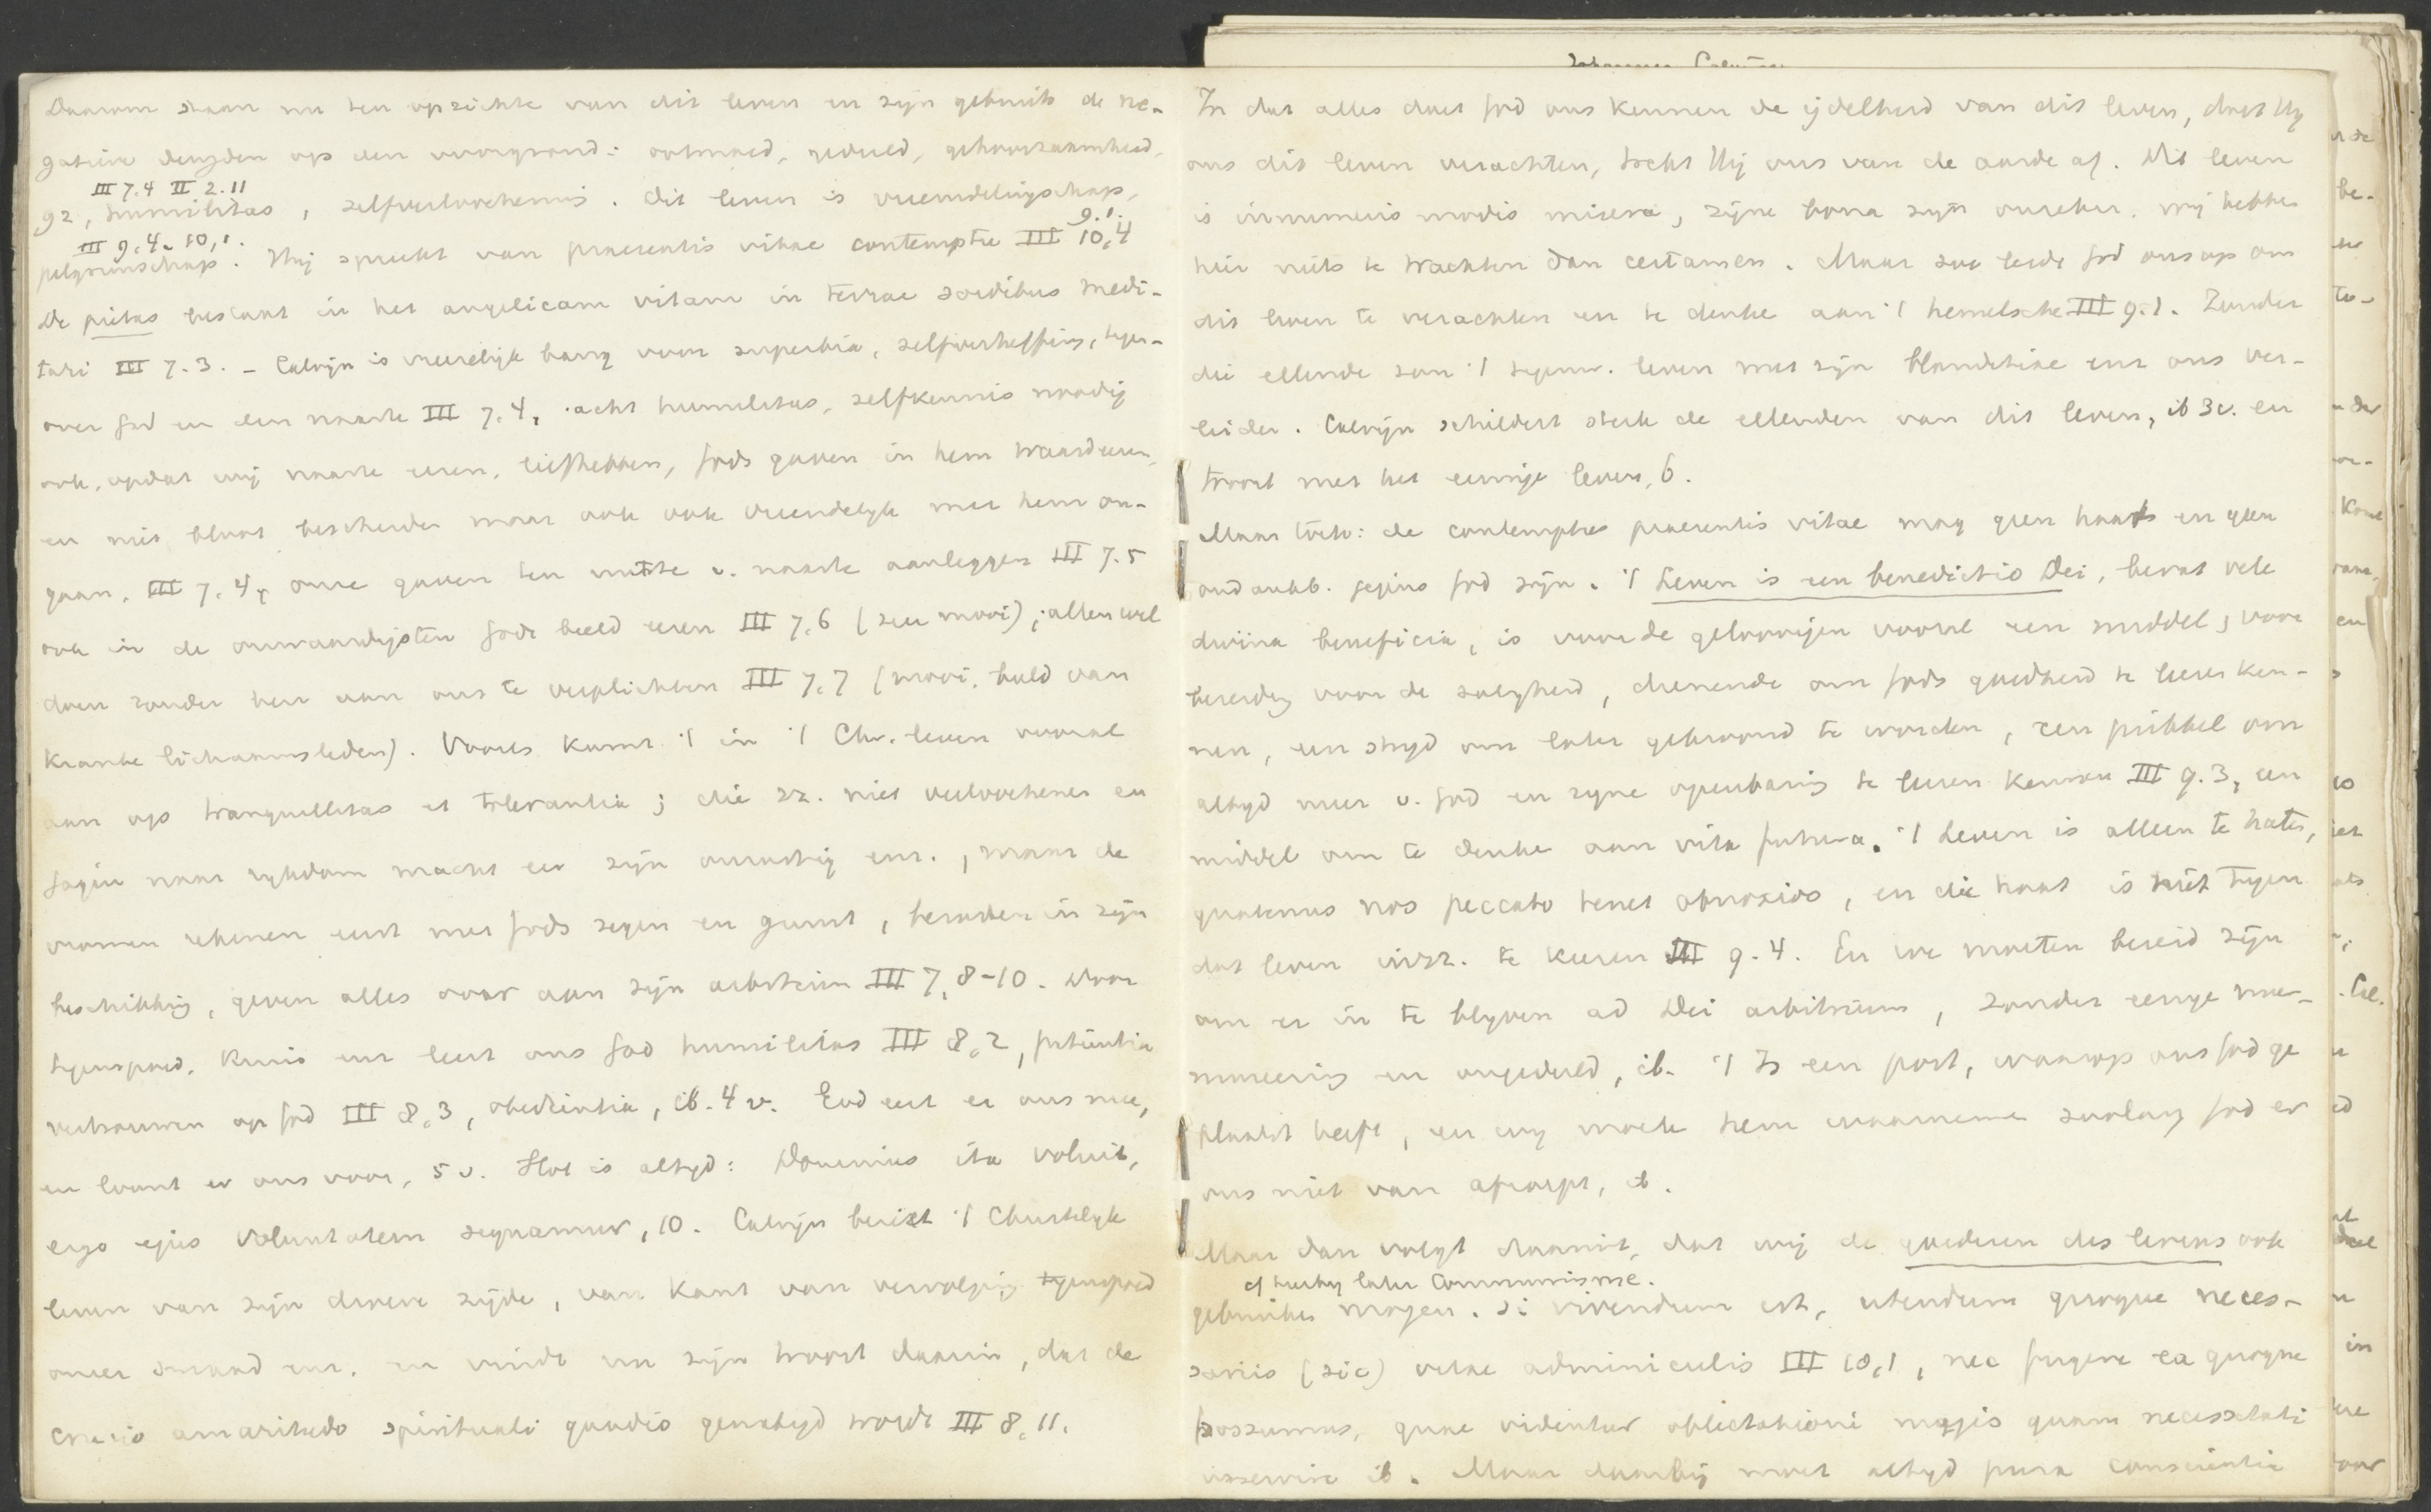 Daarom staan nu ten opzichte van dit leven en zijn gebruik de ne-
gatieve deugden op den voorgrond: ootmoed, geduld, gehoorzaamheid,
III 7.4 II 2.11
gz, humilitas, zelfverloochening. Dit leven is vreemdelingschap,
III 9.4. 10,1. 9.1.
pelgrimschap. Hij spreekt van praesentis vitae contemptu III 10,4
De pietas bestaat in het angelicam vitam in terrae sordibus medi-
tari III 7.3. - Calvijn is vreeselijk bang voor superbia, zelfverheffing, tegen-
over God en den naaste III 7.4, acht humilitas, zelfkennis noodig
ook, opdat wij naaste eeren, liefhebben, Gods gaven in hem waardeeren,
en niet bloot bescheiden maar ook ook vriendelijk met hem om-
gaan, III 7,4, onze gaven ten nutte v. naaste aanleggen III 7.5
ook in de onwaardigsten Gods beeld eeren III 7,6 (zeer mooi); allen wel
doen zonder hen aan ons te verplichten III 7,7 (mooi, beeld van
kranke lichaamsleden). Voorts komt 't in 't Chr. leven vooral
aan op tranquillitas et tolerantia; die zz. niet verloochenen en
jagen naar rijkdom macht eer zijn onrustig enz., maar de
vromen rekenen eerst met Gods zegen en gunst, berusten in zijn
beschikking, geven alles over aan zijn arbitrium III 7,8-10. Door
tegenspoed, kruis enz leert ons God humilitas III 8,2, patientia
vertrouwen op God III 8,3, obedientia, ib. 4 v. God eert er ons mee,
en loont er ons voor, 5 v. Slot is altijd: Dominus ita voluit,
ergo ejus voluntatem sequamur, 10. Calvijn beziet 't Christelijk
leven van zijn donkere zijde, van kant van vervolging tegenspoed
oneer smaad enz. en vindt nu zijn troost daarin, dat de
crucis amaritudo spirituali gaudio gematigd wordt III 8,11.
In dat alles doet God ons kennen de ijdelheid van dit leven, doet Hij
ons dit leven verachten, trekt Hij ons van de aarde af. Dit leven
is innumeris modis misera, zijne bona zijn onzeker. wij hebben
hier niets te wachten dan certamen. Maar zoo leidt God ons op om
dit leven te verachten en te denken aan 't hemelsche III 9.1. Zonder
die ellende zou 't tegenw. leven met zijn blanditiae enz ons ver-
leiden. Calvijn schildert sterk de ellenden van dit leven, ib 3 v. en
troost met het eeuwige leven, 6.
Maar toch: de contemptus praesentis vitae mag geen haat en geen
ondankb. jegens God zijn. 't Leven is een benedictio Dei, bevat vele
divina beneficia, is voor de geloovigen vooral een middel, voor
bereiding voor de zaligheid, dienende om Gods goedheid te leeren ken-
nen, een strijd om later gekroond te worden, een prikkel om
altijd meer v. God en zijne openbaring te leeren kennen III 9.3, een
middel om te denken aan vita futura. 't Leven is alleen te haten,
quatenus nos peccato tenet obnoxios, en die haat is niet tegen
dat leven in zz. te keeren III 9.4. En we moeten bereid zijn
om er in te blijven ad Dei arbitrium, zonder eenige mur-
mureering en ongeduld, ib. 't Is een post, waarop ons God ge
plaatst heeft, en wij moeten hem waarnemen zoolang God er
ons niet van afroept, ib.
Maar dan volgt daaruit, dat wij de goederen des levens ook
cf hierbij later Communisme.
gebruiken mogen. Si vivendum est, utendum quoque neces-
sariis (sic) vitae adminiculis III 10,1, nec fugere ea quoque
possumus, quae videntur oblectationi magis quam necessitati
inservire ib. Maar daarbij moet altijd pura conscientia